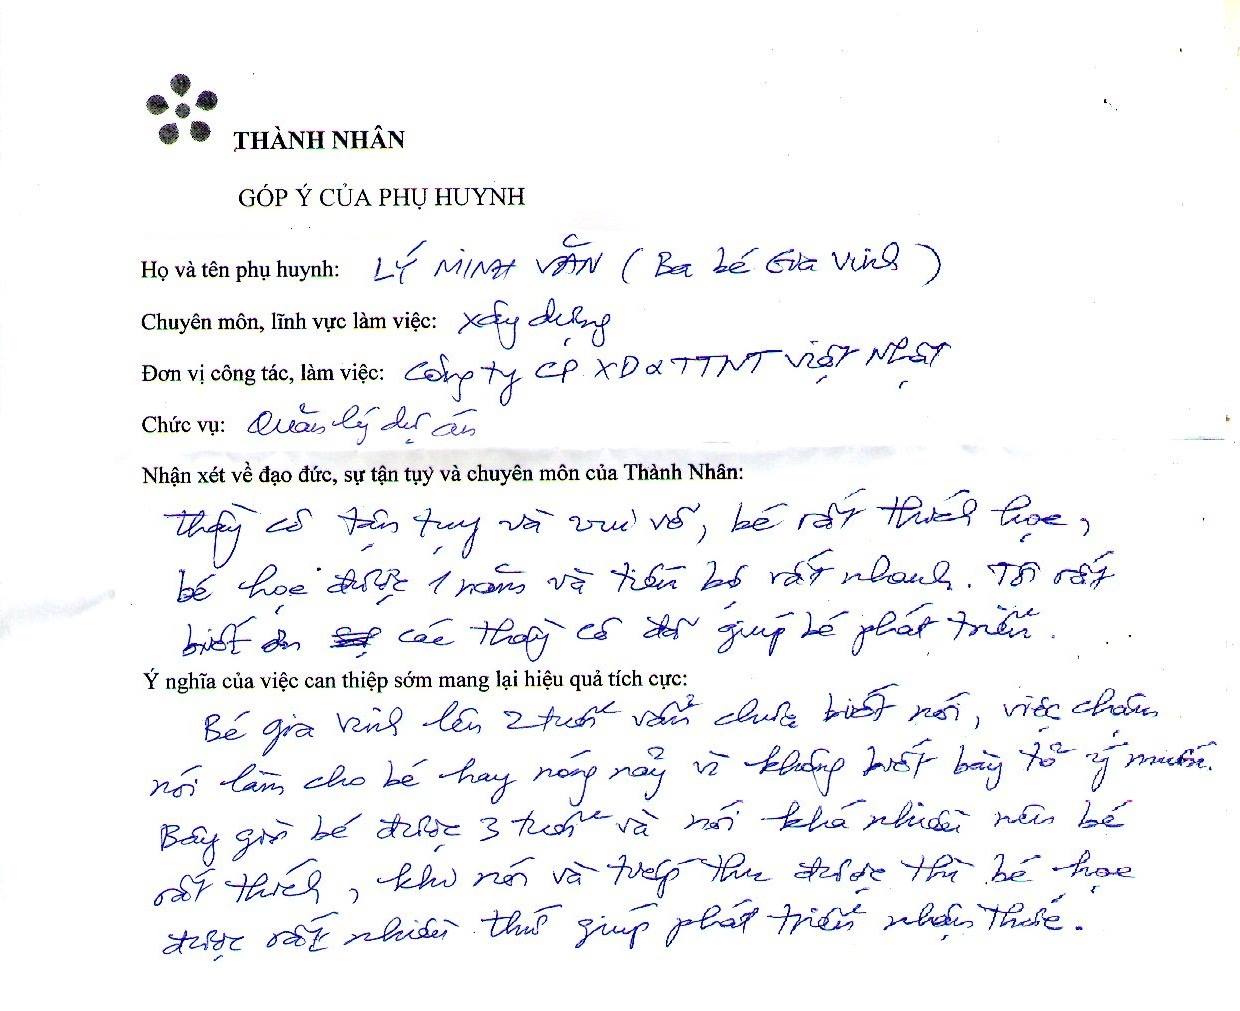 THÀNH NHÂN
GÓP Ý CỦA PHỤ HUYNH
Họ và tên phụ huynh: LÝ MINH VĂN (Ba bé Gia Vinh)
Chuyên môn, lĩnh vực làm việc: xây dựng
Đơn vị công tác, làm việc: Công ty CP XD & TTNT Việt Nhật
Chức vụ: Quản lý dự án
Nhận xét về đạo đức, sự tận tuỵ và chuyên môn của Thành Nhân:
Thầy cô tận tụy và vui vẻ, bé rất thích học,
bé học được 1 năm và tiến bộ rất nhanh. Tôi rất
biết ơn các thầy cô đã giúp bé phát triển.
Ý nghĩa của việc can thiệp sớm mang lại hiệu quả tích cực:
Bé gia vinh lên 2 tuổi vẫn chưa biết nói, việc chậm
nói làm cho bé hay nóng nảy vì không biết bày tỏ ý muốn.
Bây giờ bé được 3 tuổi và nói khá nhiều nên bé
rất thích, khi nói và tiếp thu được thì bé học
được rất nhiều thứ giúp phát triển nhận thức.